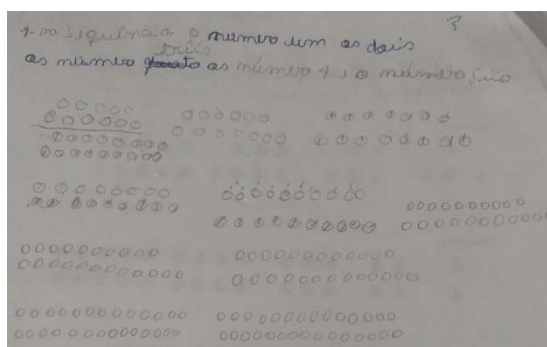 3
1 - na siquência o numero um as dois
três
as número quato as número 4, o número são